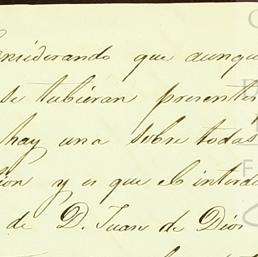 onsiderando que aunqu
se tubieran presentes
hay una sobre todas
ion y es que el interd
de D. Juan de Dios